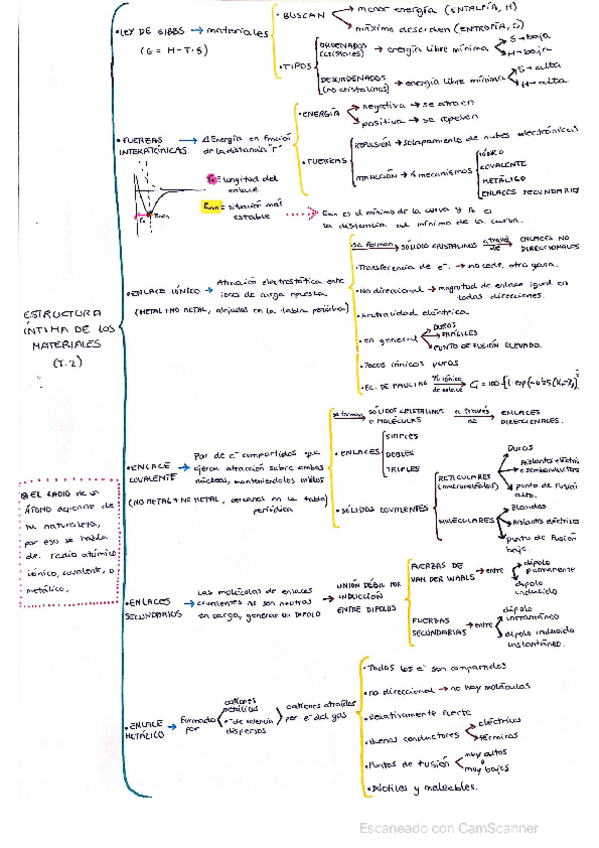 ESTRUCTURA
ÍNTIMA DE LOS
MATERIALES
(T.2)
EL RADIO de un
ÁTOMO depende de
su naturaleza,
por eso se habla
de radio atómico
iónico, covalente, o
metálico.
• LEY DE GIBBS → materiales
(G = H - T·S)
• BUSCAN
menor energía (ENTALPÍA, H)
máximo desorden (ENTROPÍA, S)
• TIPOS
ORDENADOS
(cristales)
→ energía libre mínima
S → baja
H → baja
DESORDENADOS
(no cristalinos)
→ energía libre mínima
S → alta
H → alta
• FUERZAS
INTERATÓMICAS
→ Δ Energía en función
de la distancia "r"
r₀ = longitud del
enlace
Emin = situación más
estable
Emin es el mínimo de la curva y r₀ es
la distancia al mínimo de la curva.
• ENERGÍA
negativa → se atraen
positiva → se repelen
• FUERZAS
REPULSIÓN → solapamiento de nubes electrónicas
ATRACCIÓN → 4 mecanismos
IÓNICO
COVALENTE
METÁLICO
ENLACES SECUNDARIO
• ENLACE IÓNICO → Atracción electrostática entre
iones de carga opuesta
(METAL + NO METAL, alejados en la tabla periódica)
• se forman → SÓLIDOS CRISTALINOS a través de → ENLACES NO
DIRECCIONALES
• Transferencia de e⁻. → no cede, otro gana.
• No direccional → magnitud de enlace igual en
todas direcciones.
• Neutralidad eléctrica
• en general
DUROS
FRÁGILES
PUNTO DE FUSIÓN ELEVADO.
• Pocos iónicos puros
• EC. DE PAULING % iónico de enlace →
• ENLACE
COVALENTE
→ Par de e⁻ compartidos que
ejercen atracción sobre ambos
núcleos, manteniéndolos unidos
(NO METAL + NO METAL, cercanos en la tabla
periódica
• se forman → SÓLIDOS CRISTALINOS
O MOLÉCULAS
a través de → ENLACES
DIRECCIONALES.
• ENLACES
SIMPLES
DOBLES
TRIPLES
• SÓLIDOS COVALENTES
RETICULARES
Duros
Aislantes eléctric
o semiconductores
punto de fusión
alto.
MOLECULARES
Blandos
Aislantes eléctricos
punto de fusión
bajo.
• ENLACES
SECUNDARIOS
→ Las moléculas de enlaces
covalentes no son neutras
en carga, generan un DIPOLO
→ UNIÓN DÉBIL POR
INDUCCIÓN
ENTRE DIPOLOS
FUERZAS DE
VAN DER WAALS
→ entre
dipolo
permanente
dipolo
inducido
FUERZAS
SECUNDARIAS
→ entre
dipolo
instantáneo
dipolo inducido
instantáneo.
• ENLACE
METÁLICO
→ Formado
por
cationes
metálicos
e⁻ de valencia
dispersos
cationes atraídos
por e⁻ del gas
• Todos los e⁻ son compartidos
• no direccional → no hay moléculas
• Relativamente fuerte
• Buenos conductores
eléctricos
térmicos
• Puntos de fusión
muy altos
o
muy bajos
• Dúctiles y maleables.
Escaneado con CamScanner